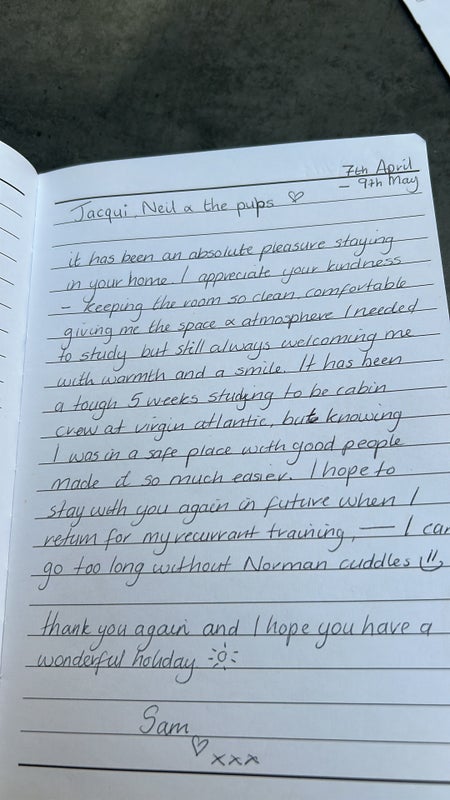 7th April
- 9th May
Jacqui, Neil & the pups ♡
it has been an absolute pleasure staying
in your home. I appreciate your kindness
- keeping the room so clean, comfortable
giving me the space & atmosphere I needed
to study but still always welcoming me
with warmth and a smile. It has been
a tough 5 weeks studying to be cabin
crew at virgin atlantic, but knowing
I was in a safe place with good people
made it so much easier. I hope to
stay with you again in future when I
return for my recurrant training, — I can
go too long without Norman cuddles
thank you again and I hope you have a
wonderful holiday
Sam
♡ xxx